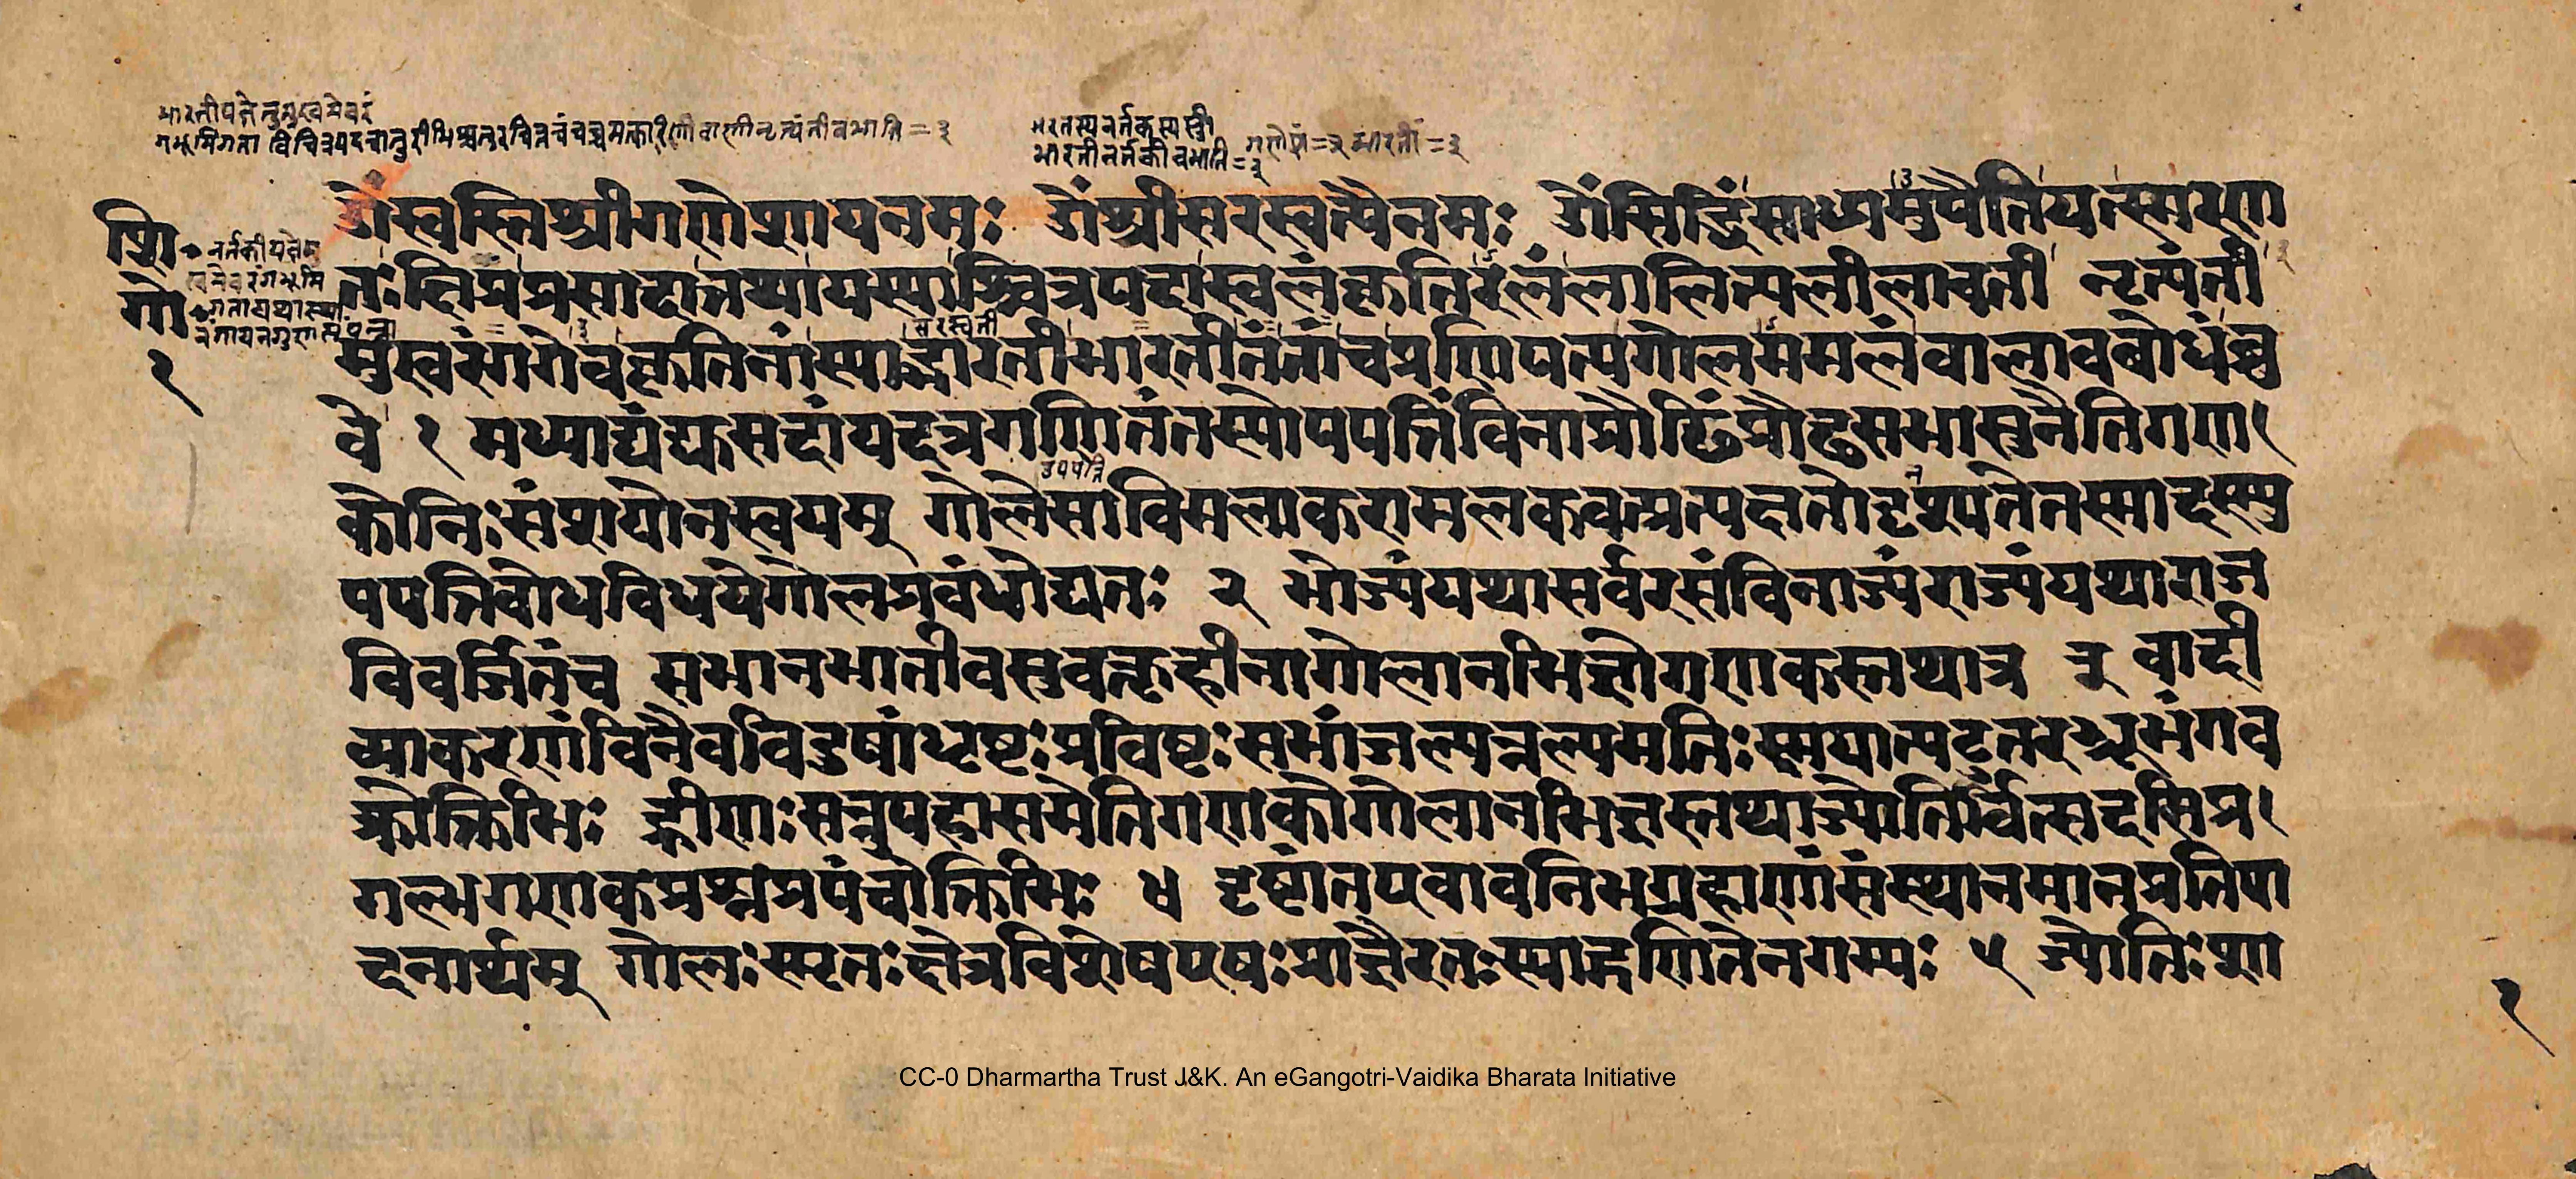 भारतीपक्षेतुमुखमेवरं
गभूमिंगता विचित्रपदचातुरीभिश्चत्तरचित्तचंचच्चमत्कारिणीवाणीनृत्यंतीवभाति=३
भरतस्यनर्तकस्यस्त्री
भारतीनर्तकीवभाति=३
गणेशं=३ भारतीं=३
शि
गो
१
नर्तकीपक्षेमु
खमेवरंगभूमिं
गतायथास्या
रंगायनगुणसंपन्ना
ॐस्वस्तिश्रीगणेशायनमः ॐश्रीसरस्वत्यैनमः ॐसिद्धिंसाध्यमुपैतियत्स्मरण
तःक्षिप्रप्रसादात्तथायस्याश्चित्रपदास्वलंकृतिरलंलालित्यलीलावती नृत्यंती
मुखरंगगेवकृतिनांस्याद्भारतीभारतीतंतांचप्रणिपत्यगोलममलंबालावबोधंब्रु
सरस्वती
वे १ मध्याद्यंद्युसदांयदत्रगणितंतस्योपपत्तिंविनाप्रौढिंप्रौढसभासुनैतिगण
उपपत्ति
कोनिःसंशयोनस्वयम् गोलेसाविमलाकरामलकवत्प्रत्यक्षतोदृश्यतेतस्मादस्म्यु
पपत्तिबोधविधयेगोलप्रबंधोद्यतः २ भोज्यंयथासर्वरसंविनाज्यंराज्यंयथाराज
विवर्जितंच सभानभातीवसुवक्तृहीनागोलानभिज्ञोगणकस्तथात्र ३ वादी
व्याकरणंविनैवविदुषांधृष्टःप्रविष्टःसभांजल्पन्नल्पमतिःस्मयात्पटुतरभ्रूभंगव
क्रोक्तिभिः ह्रीणःसन्नुपहासमेतिगणकोगोलानभिज्ञस्तथाज्योतिर्वित्सदसिप्र
गल्भगणकप्रश्नप्रपंचोक्तिभिः ४ दृष्टांतएवावनिभग्रहाणांसंस्थानमानप्रतिपा
दनार्थम् गोलःस्मृतःक्षेत्रविशेषएषःप्राज्ञैरतःस्याद्गणितेनगम्यः ५ ज्योतिःशा
१
CC-0 Dharmartha Trust J&K. An eGangotri-Vaidika Bharata Initiative